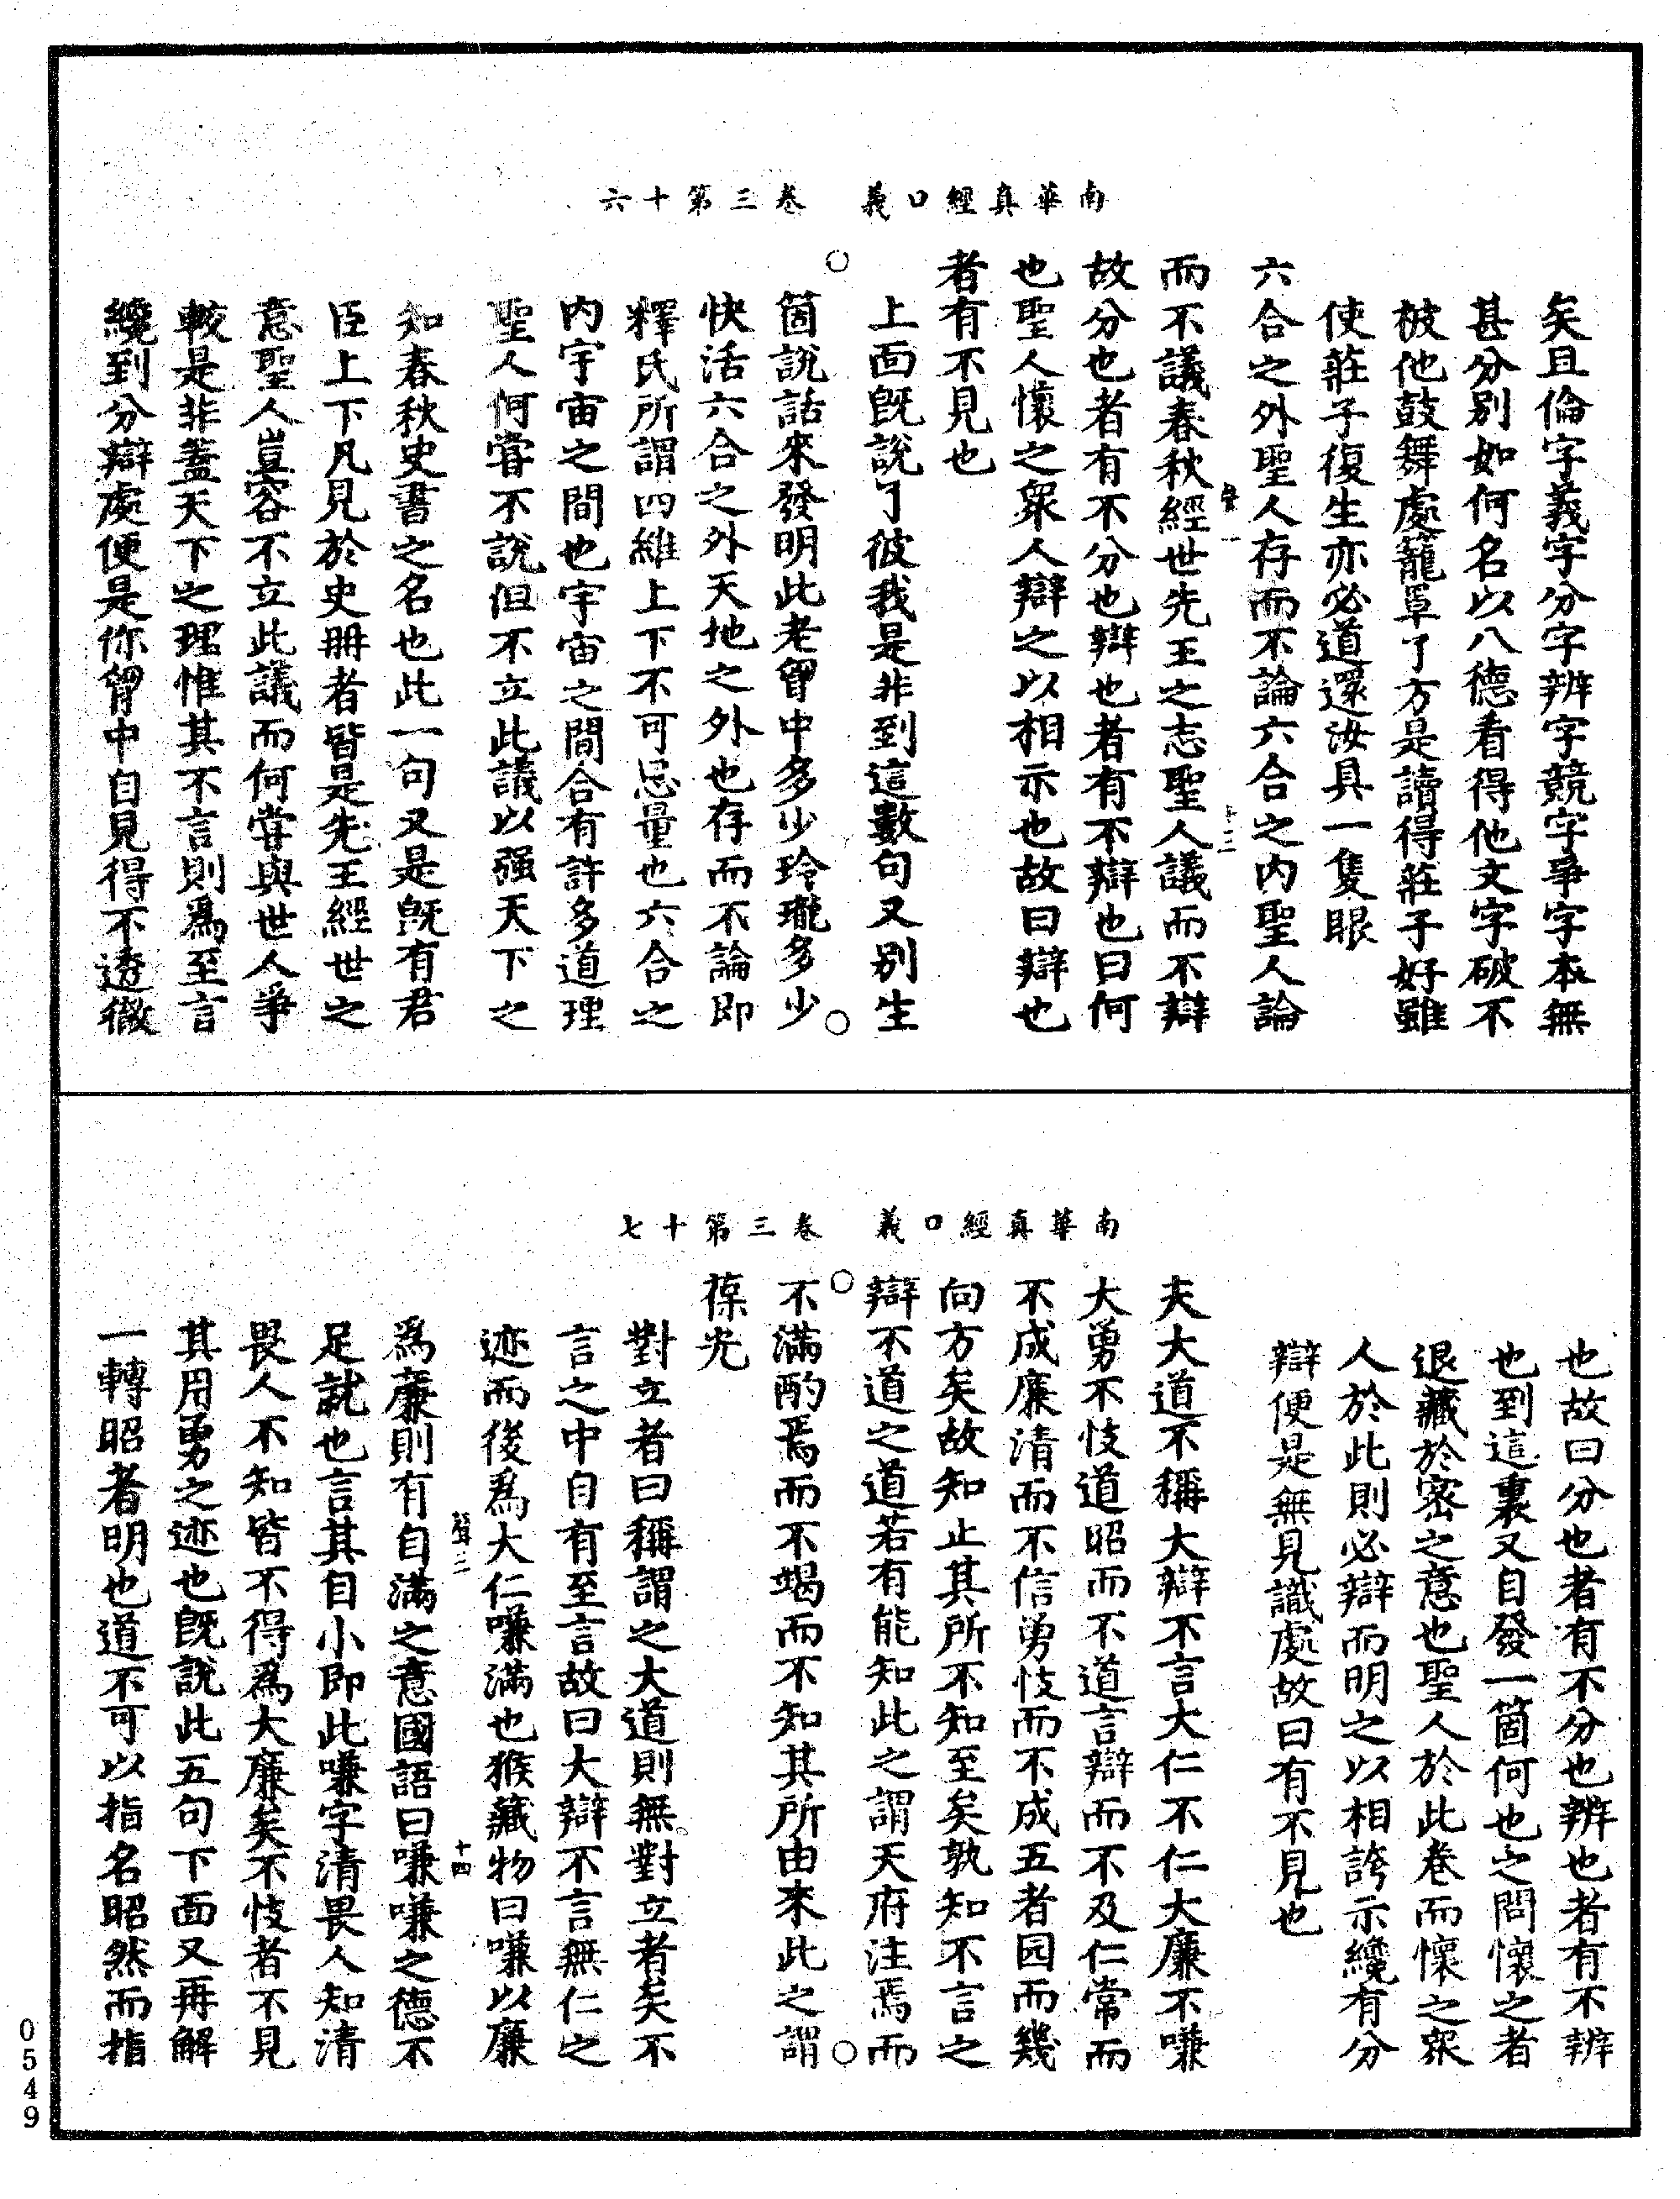 南華真經口義　卷三第十六
矣且倫字義字分字辨字競字爭字本無
甚分别如何名以八德看得他文字破不
被他鼓舞處籠罩了方是讀得莊子好雖
使莊子復生亦必道還汝具一隻眼
六合之外聖人存而不論六合之内聖人論
而不議春秋經世先王之志聖人議而不辯
故分也者有不分也辯也者有不辯也曰何
也聖人懷之衆人辯之以相示也故曰辯也
者有不見也
上面旣說了彼我是非到這數句又别生
箇說話來發明此老胷中多少玲瓏多少
快活六合之外天地之外也存而不論即
釋氏所謂四維上下不可思量也六合之
内宇宙之間也宇宙之間合有許多道理
聖人何嘗不說但不立此議以强天下之
知春秋史書之名也此一句又是旣有君
臣上下凡見於史册者皆是先王經世之
意聖人豈容不立此議而何嘗與世人爭
較是非蓋天下之理惟其不言則爲至言
纔到分辯處便是你胷中自見得不透徹
南華真經口義　卷三第十七
也故曰分也者有不分也辨也者有不辨
也到這裏又自發一箇何也之問懷之者
退藏於密之意也聖人於此卷而懷之衆
人於此則必辯而明之以相誇示纔有分
辯便是無見識處故曰有不見也
夫大道不稱大辯不言大仁不仁大廉不嗛
大勇不忮道昭而不道言辯而不及仁常而
不成廉清而不信勇忮而不成五者园而幾
向方矣故知止其所不知至矣孰知不言之
辯不道之道若有能知此之謂天府注焉而
不滿酌焉而不竭而不知其所由來此之謂
葆光
對立者曰稱謂之大道則無對立者矣不
言之中自有至言故曰大辯不言無仁之
迹而後爲大仁嗛滿也猴藏物曰嗛以廉
聲二　十四
爲廉則有自滿之意國語曰嗛嗛之德不
足就也言其自小即此嗛字清畏人知清
畏人不知皆不得爲大廉矣不忮者不見
其用勇之迹也旣說此五句下面又再解
一轉昭者明也道不可以指名昭然而指
0549